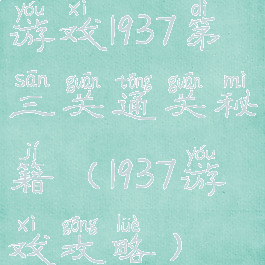 yóu xì dì
游戏1937第
sān guān tōng guān mì
三关通关秘
jí yóu
籍(1937游
xì gōng lüè
戏攻略)